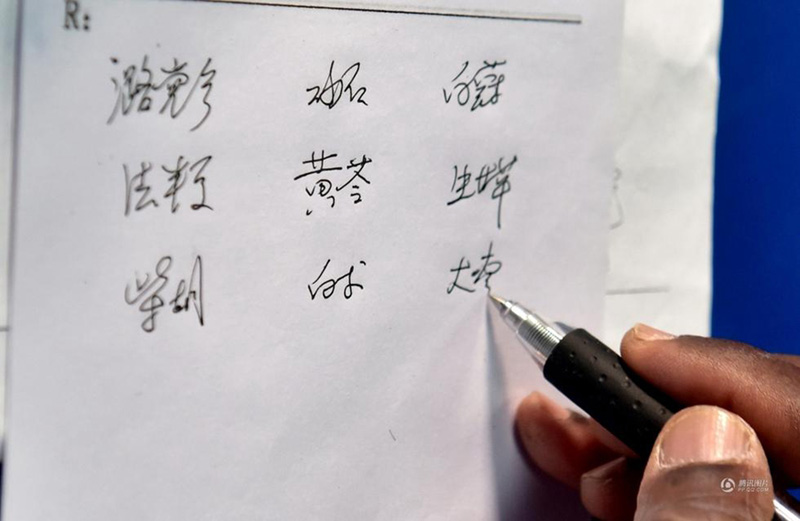 R:
潞党参 砂仁 白蔻
法半夏 黄芩 生姜
柴胡 白术 大枣
腾讯图片
PP.QQ.COM